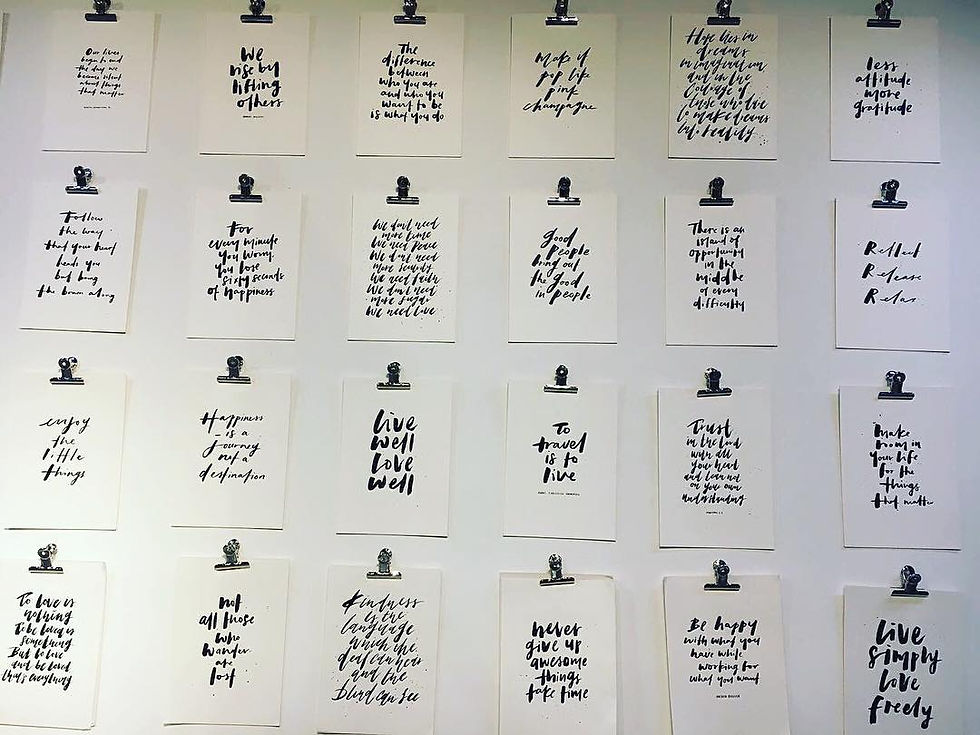 Our lives
begin to end
the day we
become silent
about things
that matter
We
rise by
lifting
others
The
difference
between
who you are
and who you
want to be
is what you do
Make it
pop like
pink
champagne
Hope lies in
dreams
in imagination
and in the
courage of
those who dare
to make dreams
into reality
less
attitude
more
gratitude
Follow
the way
that your heart
leads you
but bring
the brain along
For
every minute
you worry,
you lose
sixty seconds
of happiness
We don't need
more time
We need Peace
We don't need
more beauty
We need faith
We don't need
more sugar
We need love
good
people
bring out
the good
in people
There is an
island of
opportunity
in the
middle
of every
difficulty
Reflect
Release
Relax
enjoy
the
little
things
Happiness
- is a
journey
not a
destination
Live
well
Love
well
To
travel
is to
live
Trust
in the Lord
with all
your heart
and lean not
on your own
understanding
Make
room in
your life
for the
things
that matter
To love is
nothing
To be loved is
something
But to love
and be loved
that's everything
Not
all those
who
wander
are
lost
Kindness
is the
language
which the
deaf can hear
and the
blind can see
Never
give up
awesome
things
take time
Be happy
with what you
have while
working for
what you want
Live
Simply
Love
freely